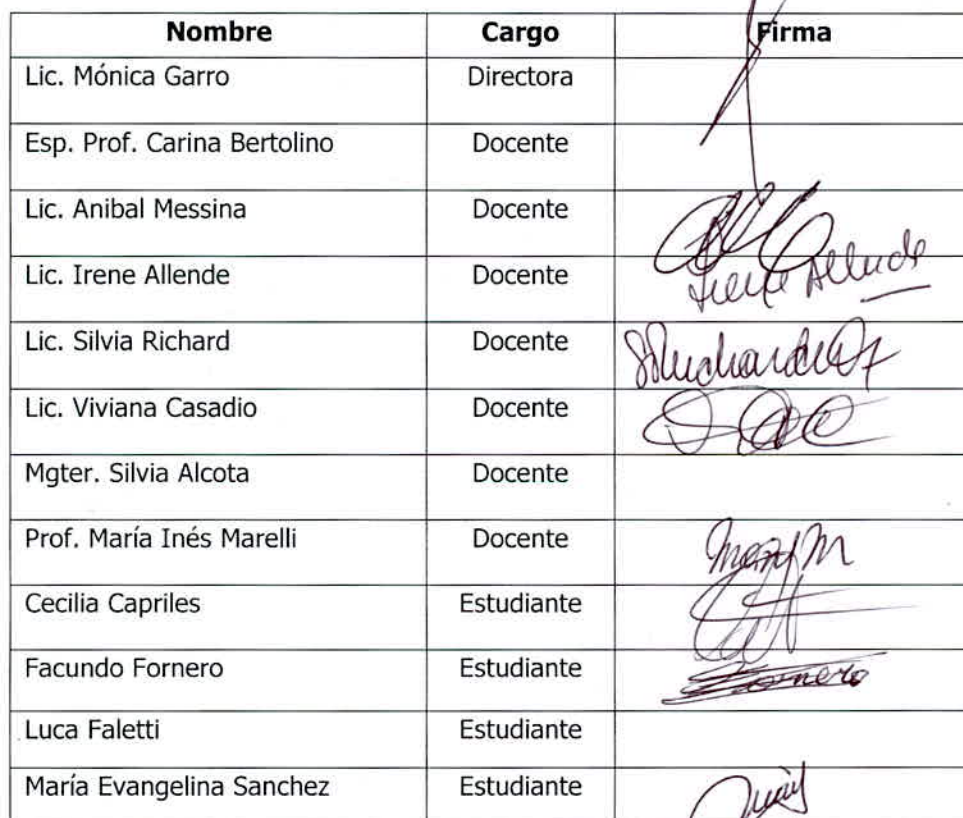 Nombre Cargo Firma
Lic. Mónica Garro Directora
Esp. Prof. Carina Bertolino Docente
Lic. Anibal Messina Docente
Lic. Irene Allende Docente Irene Allende
Lic. Silvia Richard Docente
Lic. Viviana Casadio Docente
Mgter. Silvia Alcota Docente
Prof. María Inés Marelli Docente
Cecilia Capriles Estudiante
Facundo Fornero Estudiante Fornero
Luca Faletti Estudiante
María Evangelina Sanchez Estudiante